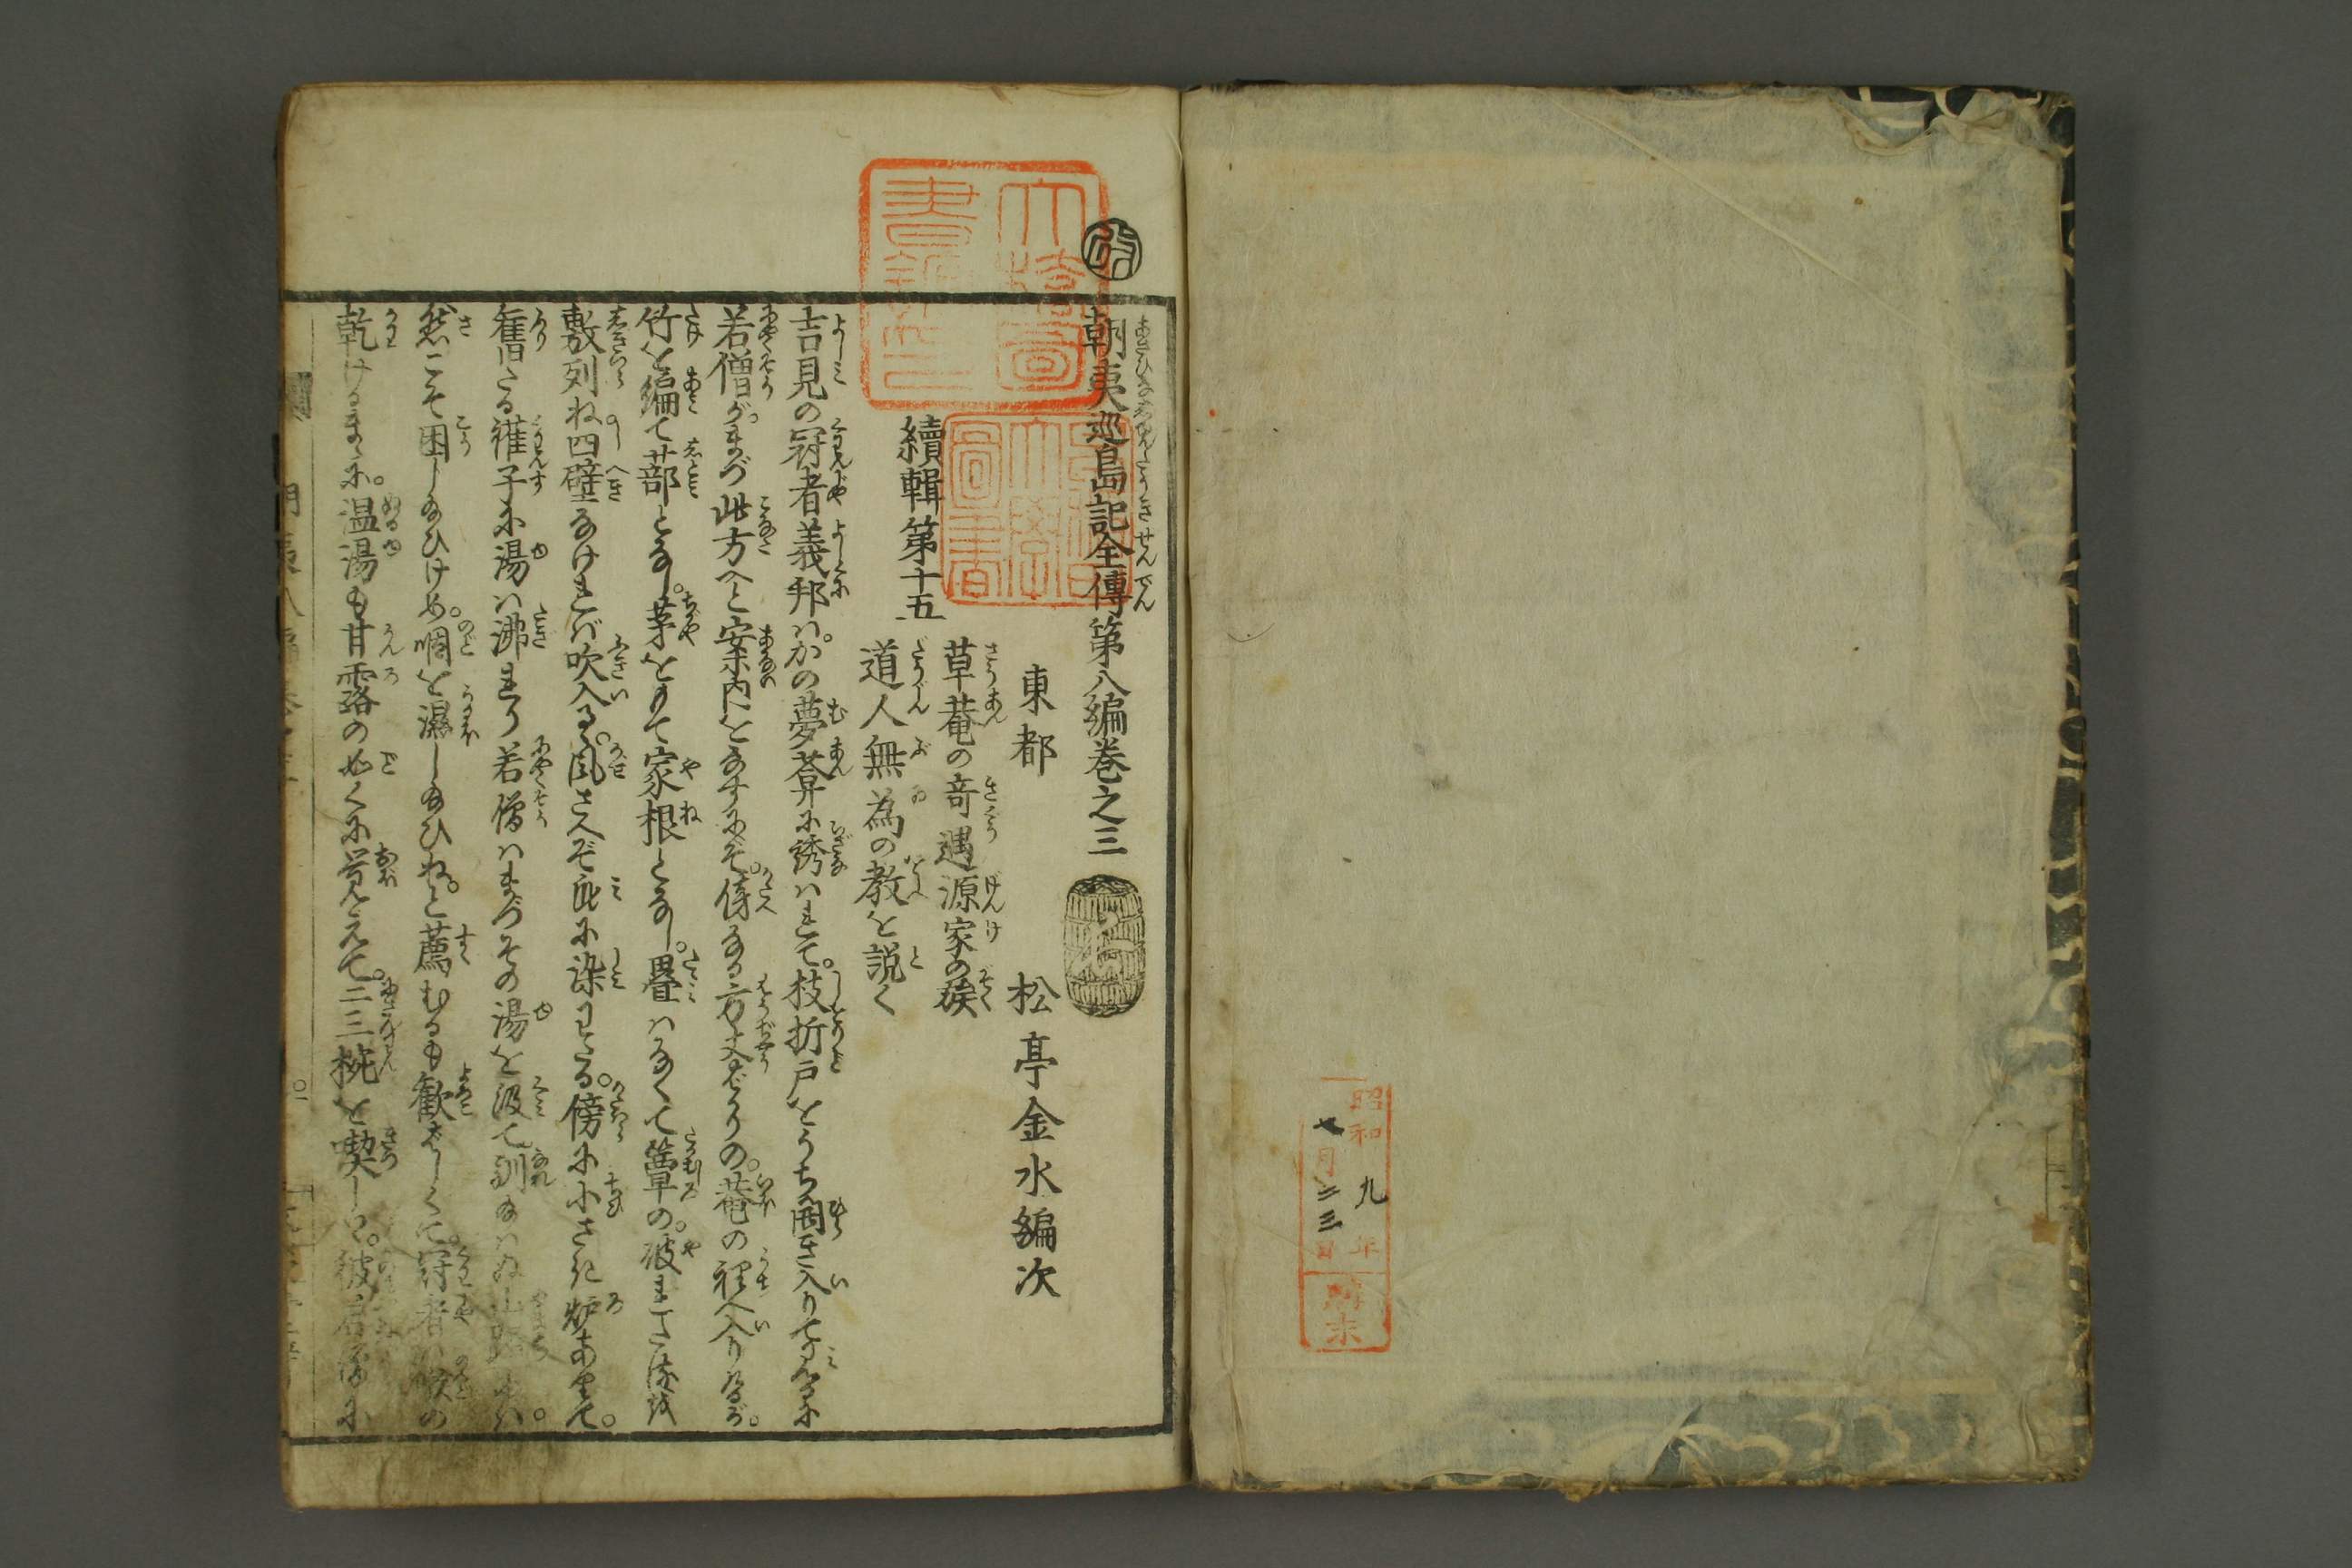 昭和九年
七月二三日
製本
朝夷巡島記全傳第八編巻之三
東都　松亭金水編次
續輯第十五
草菴の竒遇源家の族
道人無為の教を説く
吉見の冠者義邦ハ。かの夢菴に誘ハれて。枝折戸をうち開き入りて見るに
若僧がまづ此方へと案内をなすにぞ。傍なる方丈ばかりの。菴の裡へ入りけるが。
竹を編て蔀となし。茅をもて家根となし。畳ハなくて簟の。破れたるを
敷列ね四壁なけれバ吹入る。風さへぞ身に染わたる。傍に小さき炉ありて。
舊たる鑵子に湯ハ沸れり若僧ハまづその湯を汲て
然こそ困し給ひけめ。咽を濕し給ひね。と薦むるも歓ばしくて。冠者ハ喉の
乾けるまゝに。温湯も甘露の如くに覚えて。二三椀を喫しつ。彼若僧に